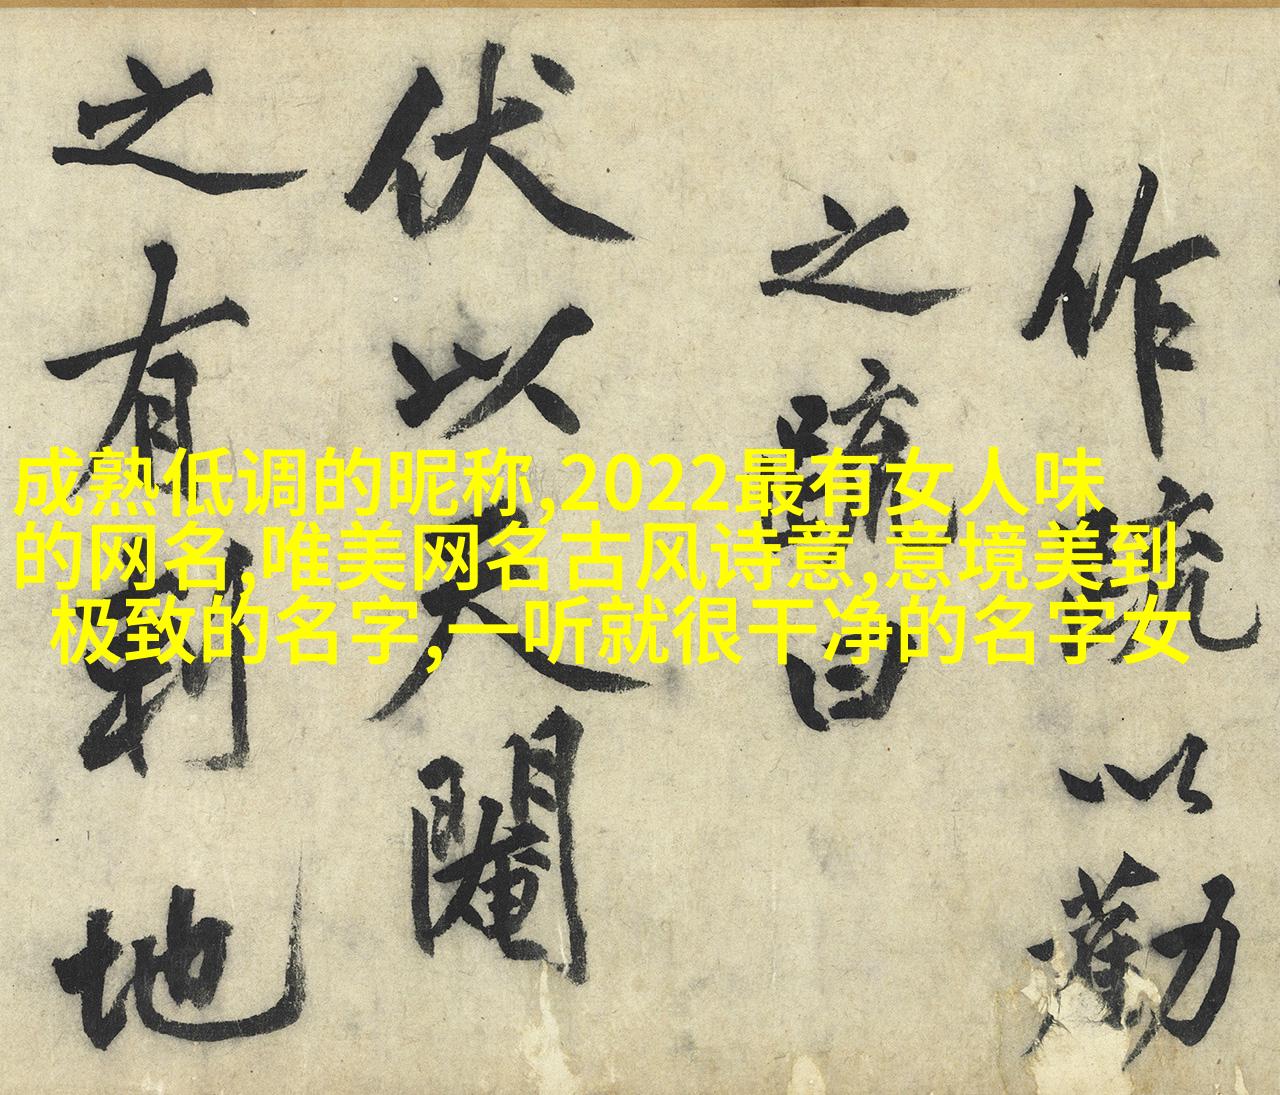 作疏以勸
之疏曰
伏以閹
之有地
成熟低调的昵称,2022最有女人味
的网名,唯美网名古风诗意,意境美到
极致的名字,一听就很干净的名字女